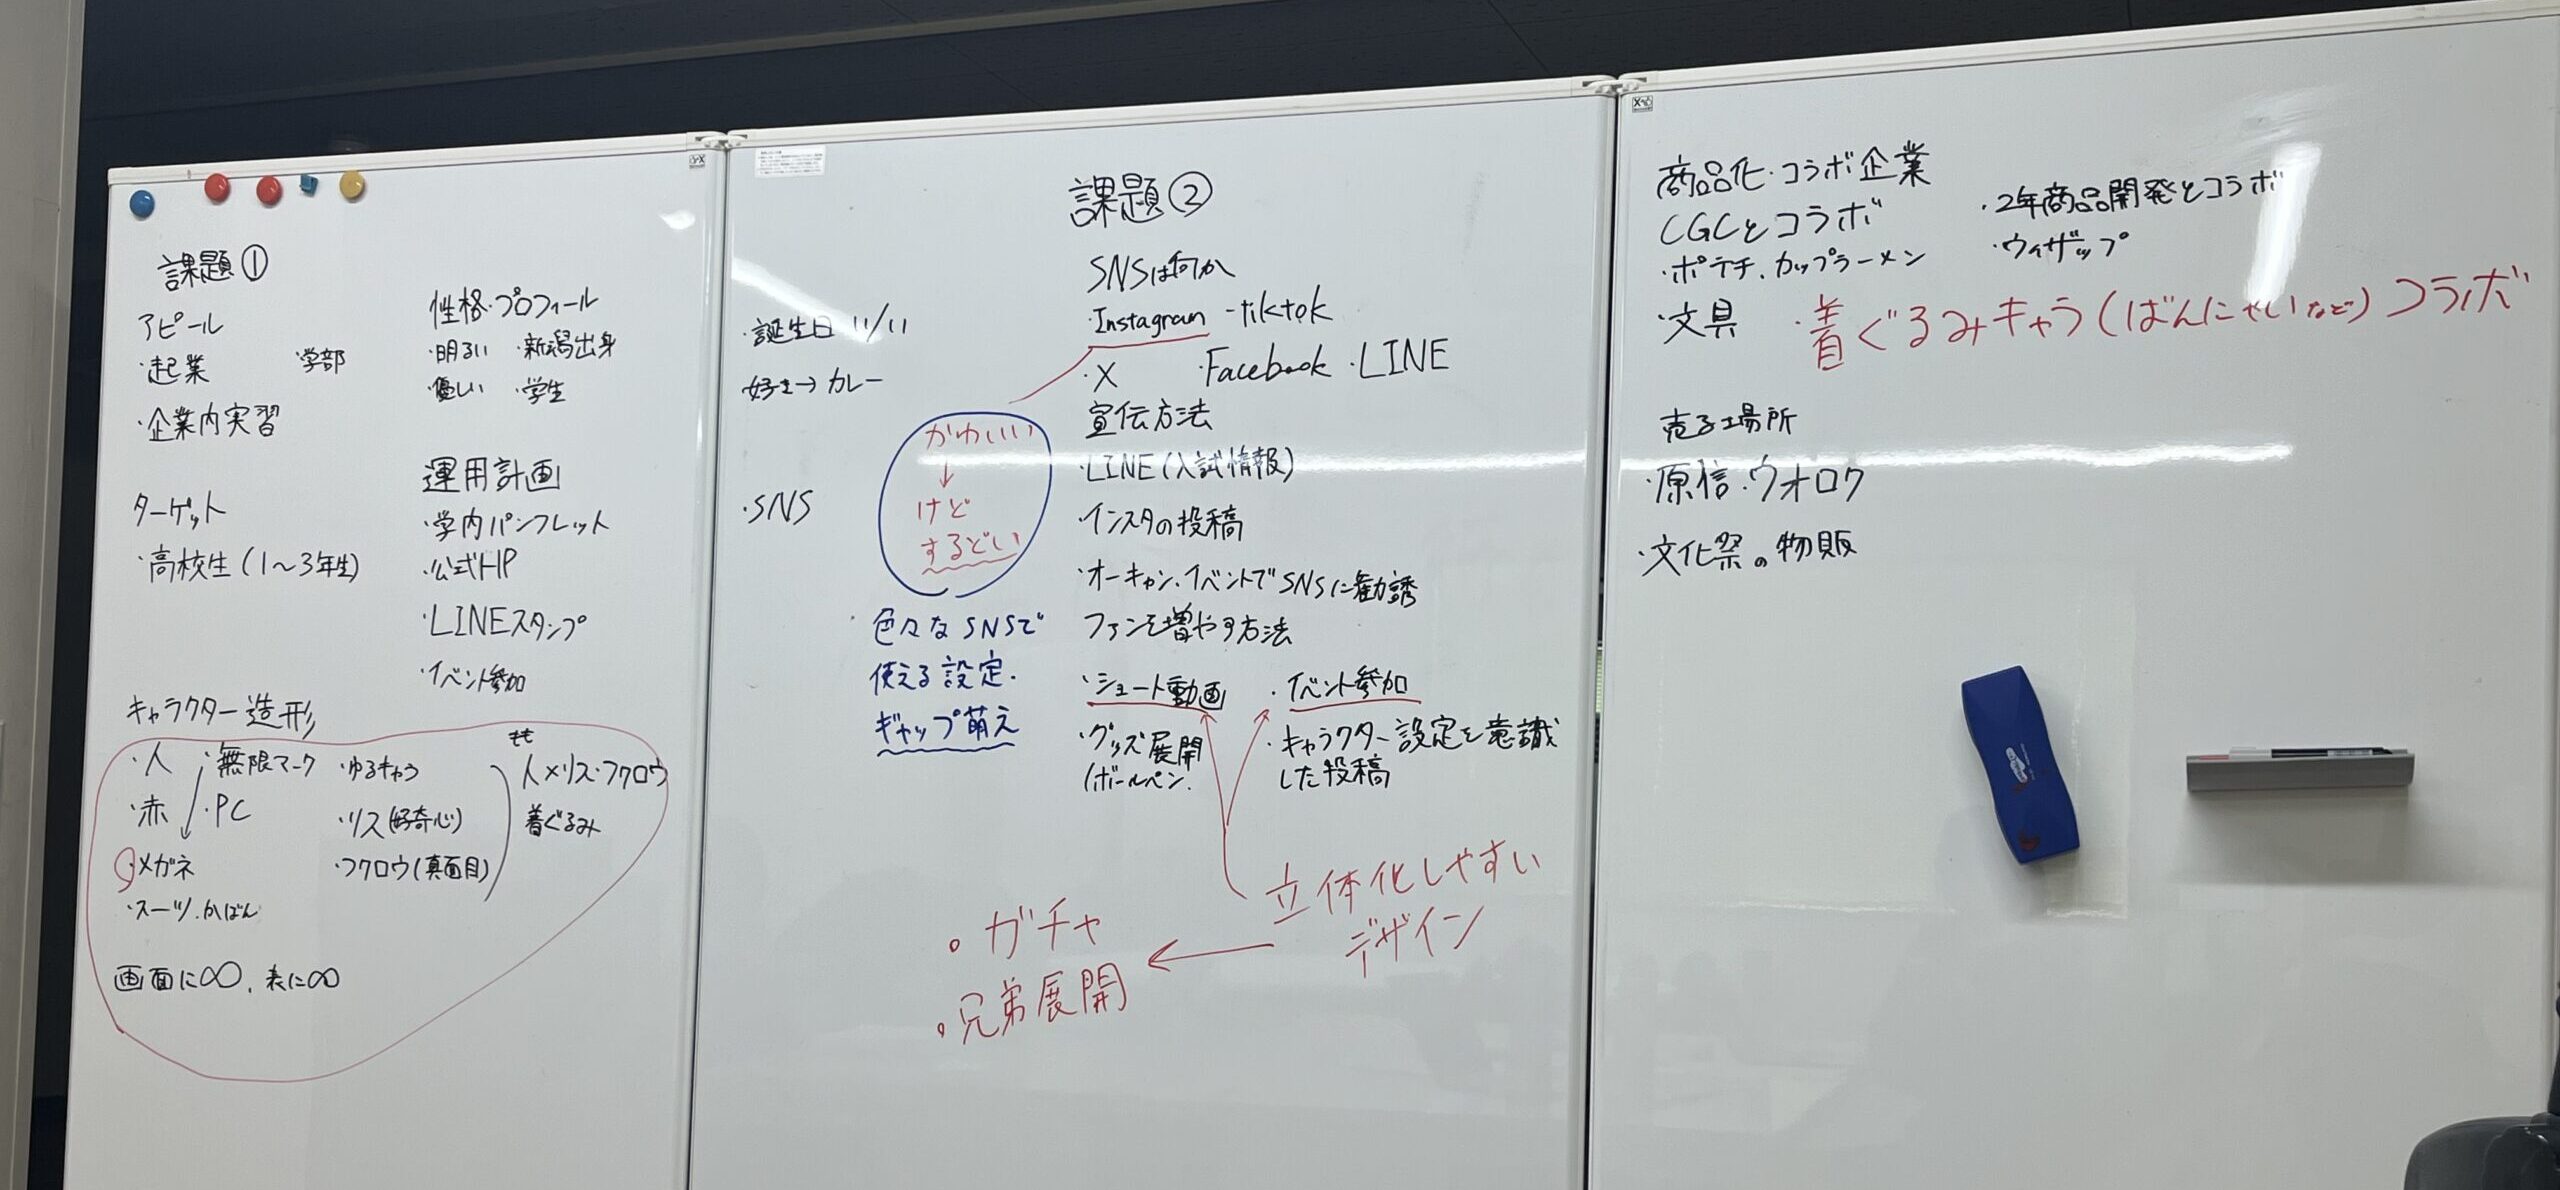 課題①
アピール
・起業
・学部
・企業内実習
ターゲット
・高校生(1〜3年生)
性格・プロフィール
・明るい ・新潟出身
・優しい ・学生
運用計画
・学内パンフレット
・公式HP
・LINEスタンプ
・イベント参加
キャラクター造形
・人 ・無限マーク ・ゆるキャラ
・赤 ・PC ・リス(好奇心)
・メガネ ・フクロウ(真面目)
・スーツ、かばん
人×リス・フクロウ
着ぐるみ
画面に∞、表に∞
課題②
・誕生日 11/11
好き→カレー
・SNS
かわいい
↓
けど
するどい
色々なSNSで
使える設定.
ギャップ萌え
SNSは何か
・Instagram -tiktok
・X ・Facebook ・LINE
宣伝方法
・LINE(入試情報)
・インスタの投稿
・オーキャン、イベントでSNSに勧誘
ファンを増やす方法
・ショート動画 ・イベント参加
・グッズ展開
(ボールペン.
・キャラクター設定を意識
した投稿
立体化しやすい
デザイン
・ガチャ
・兄弟展開
商品化・コラボ企業
CGCとコラボ
・ポテチ、カップラーメン
・文具
・2年商品開発とコラボ
・ウィザップ
・着ぐるみキャラ(ばんにゃいなど)コラボ
売る場所
・原信・ウオロク
・文化祭の物販